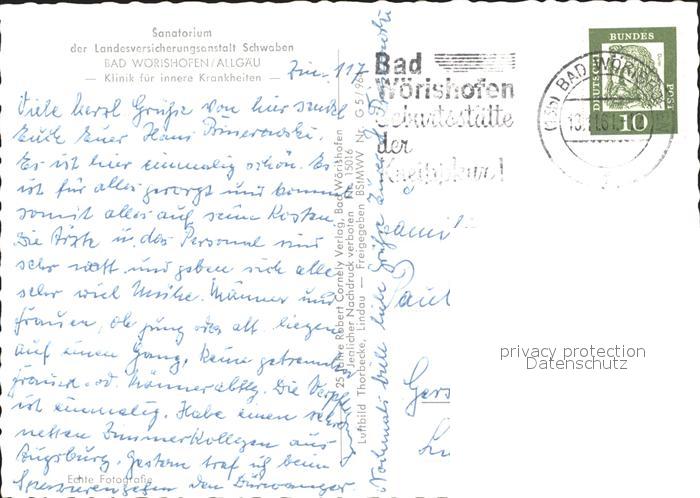 Sanatorium
der Landesversicherungsanstalt Schwaben
BAD WÖRISHOFEN/ALLGÄU
— Klinik für innere Krankheiten —
Zim. 117
Viele herzl Grüße von hier sendet
Euch Euer Hans
Es ist hier einmalig schön. Es
ist für alles gesorgt und kommt
somit alles auf seine Kosten.
Die Ärzte u. das Personal sind
sehr nett und geben sich alle
sehr viel Mühe. Männer und
Frauen, ob jung oder alt liegen
auf einem Gang, keine getrennte
Frauen od. Männerabtlg. Die Verpfleg
ist einmalig. Habe einen sehr
netten Zimmerkollegen aus
Augsburg. Gestern traf ich beim
Spazierengehen den
Echte Fotografie
25 Jahre Robert Cornely Verlag, Bad Wörishofen
Jeglicher Nachdruck verboten Nr. 15016
Luftbild Thorbecke, Lindau — Freigegeben BStMWV Nr. G 5/196
Nochmals viele liebe Grüße Euer
Bad
Wörishofen
Geburtsstätte
der
Kneippkur!
BAD WÖRIS
DEUTSCHE
BUNDES
POST
10
privacy protection
Datenschutz